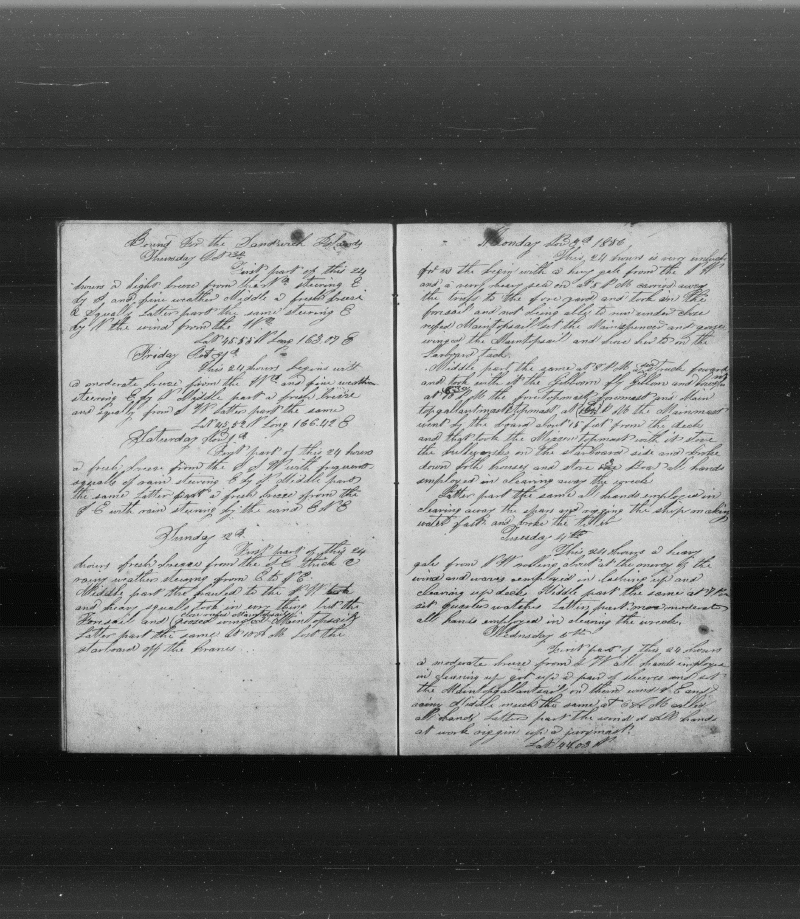 Bound For the Sandwich Islands
Thursday Oct 30
First part of this 24
hours a light breeze from the W steering E
by S and fine weather Middle a fresh breeze
& squally Latter part the same steering E
by N the wind from the W
Lat 45.53 N Long 163.07 E
Friday Oct 31
This 24 hours begins with
a moderate breeze from the W and fine weather
steering E by S Middle part a fresh breeze
and squally from S W latter part the same
Lat 45.52 N Long 166.42 E
Saturday Nov 1st
First part of this 24 hours
a fresh breeze from the S S W with frequent
squalls of rain steering E by S Middle part
the same Latter part a fresh breeze from the
S E with rain steering by the wind E N E
Sunday 2d
First part of this 24
hours fresh breeze from the S E thick &
rainy weather steering from E to N E
Middle part the same to the N W
and heavy squalls took in every thing but the
Foresail and close reefed Main topsail
Latter part the same at M lost the
starboard off the cranes
Monday Nov 3d 1856
This 24 hours is very
for us the begin with a heavy gale from the N W
and a very heavy sea on at 8 P M carried away
the truss to the fore yard and took in the
foresail and not being able to run under close
reefed Maintopsail set the Mainspencer and goose
winged the Maintopsail and hove her to on the
Larboard Tack
Middle part the same at 8 P M
and took with it the Gibboom fly Gibboom and
at P M the foretopmast foremast and Main
topgallantmast topmast at P M the Mainmast
went by the board about 15 feet from the deck
and that took the Mizen topmast with it stove
the bulwarks on the starboard side and broke
down both houses and stove Boat all hands
employed in clearing away the wreck
Latter part the same all hands employed in
clearing away the spars and rigging the ship making
water fast and broke the tiller
Tuesday 4th
This 24 hours a heavy
gale from N W rolling about at the mercy of the
wind and waves employed in lashing up and
clearing up deck Middle part the same at 7 P M
set Quarter watches Latter part more moderate
all hands employed in clearing the wreck
Wednesday 5th
First part of this 24 hours
a moderate breeze from S W all hands employed
in clearing up got up a pair of sheers and set
the Maintopgallantsail on them wind S E and
rainy Middle much the same at 6 A M called
all hands Latter part the wind S all hands
at work riggin up a jurymast
Lat 44.03 N